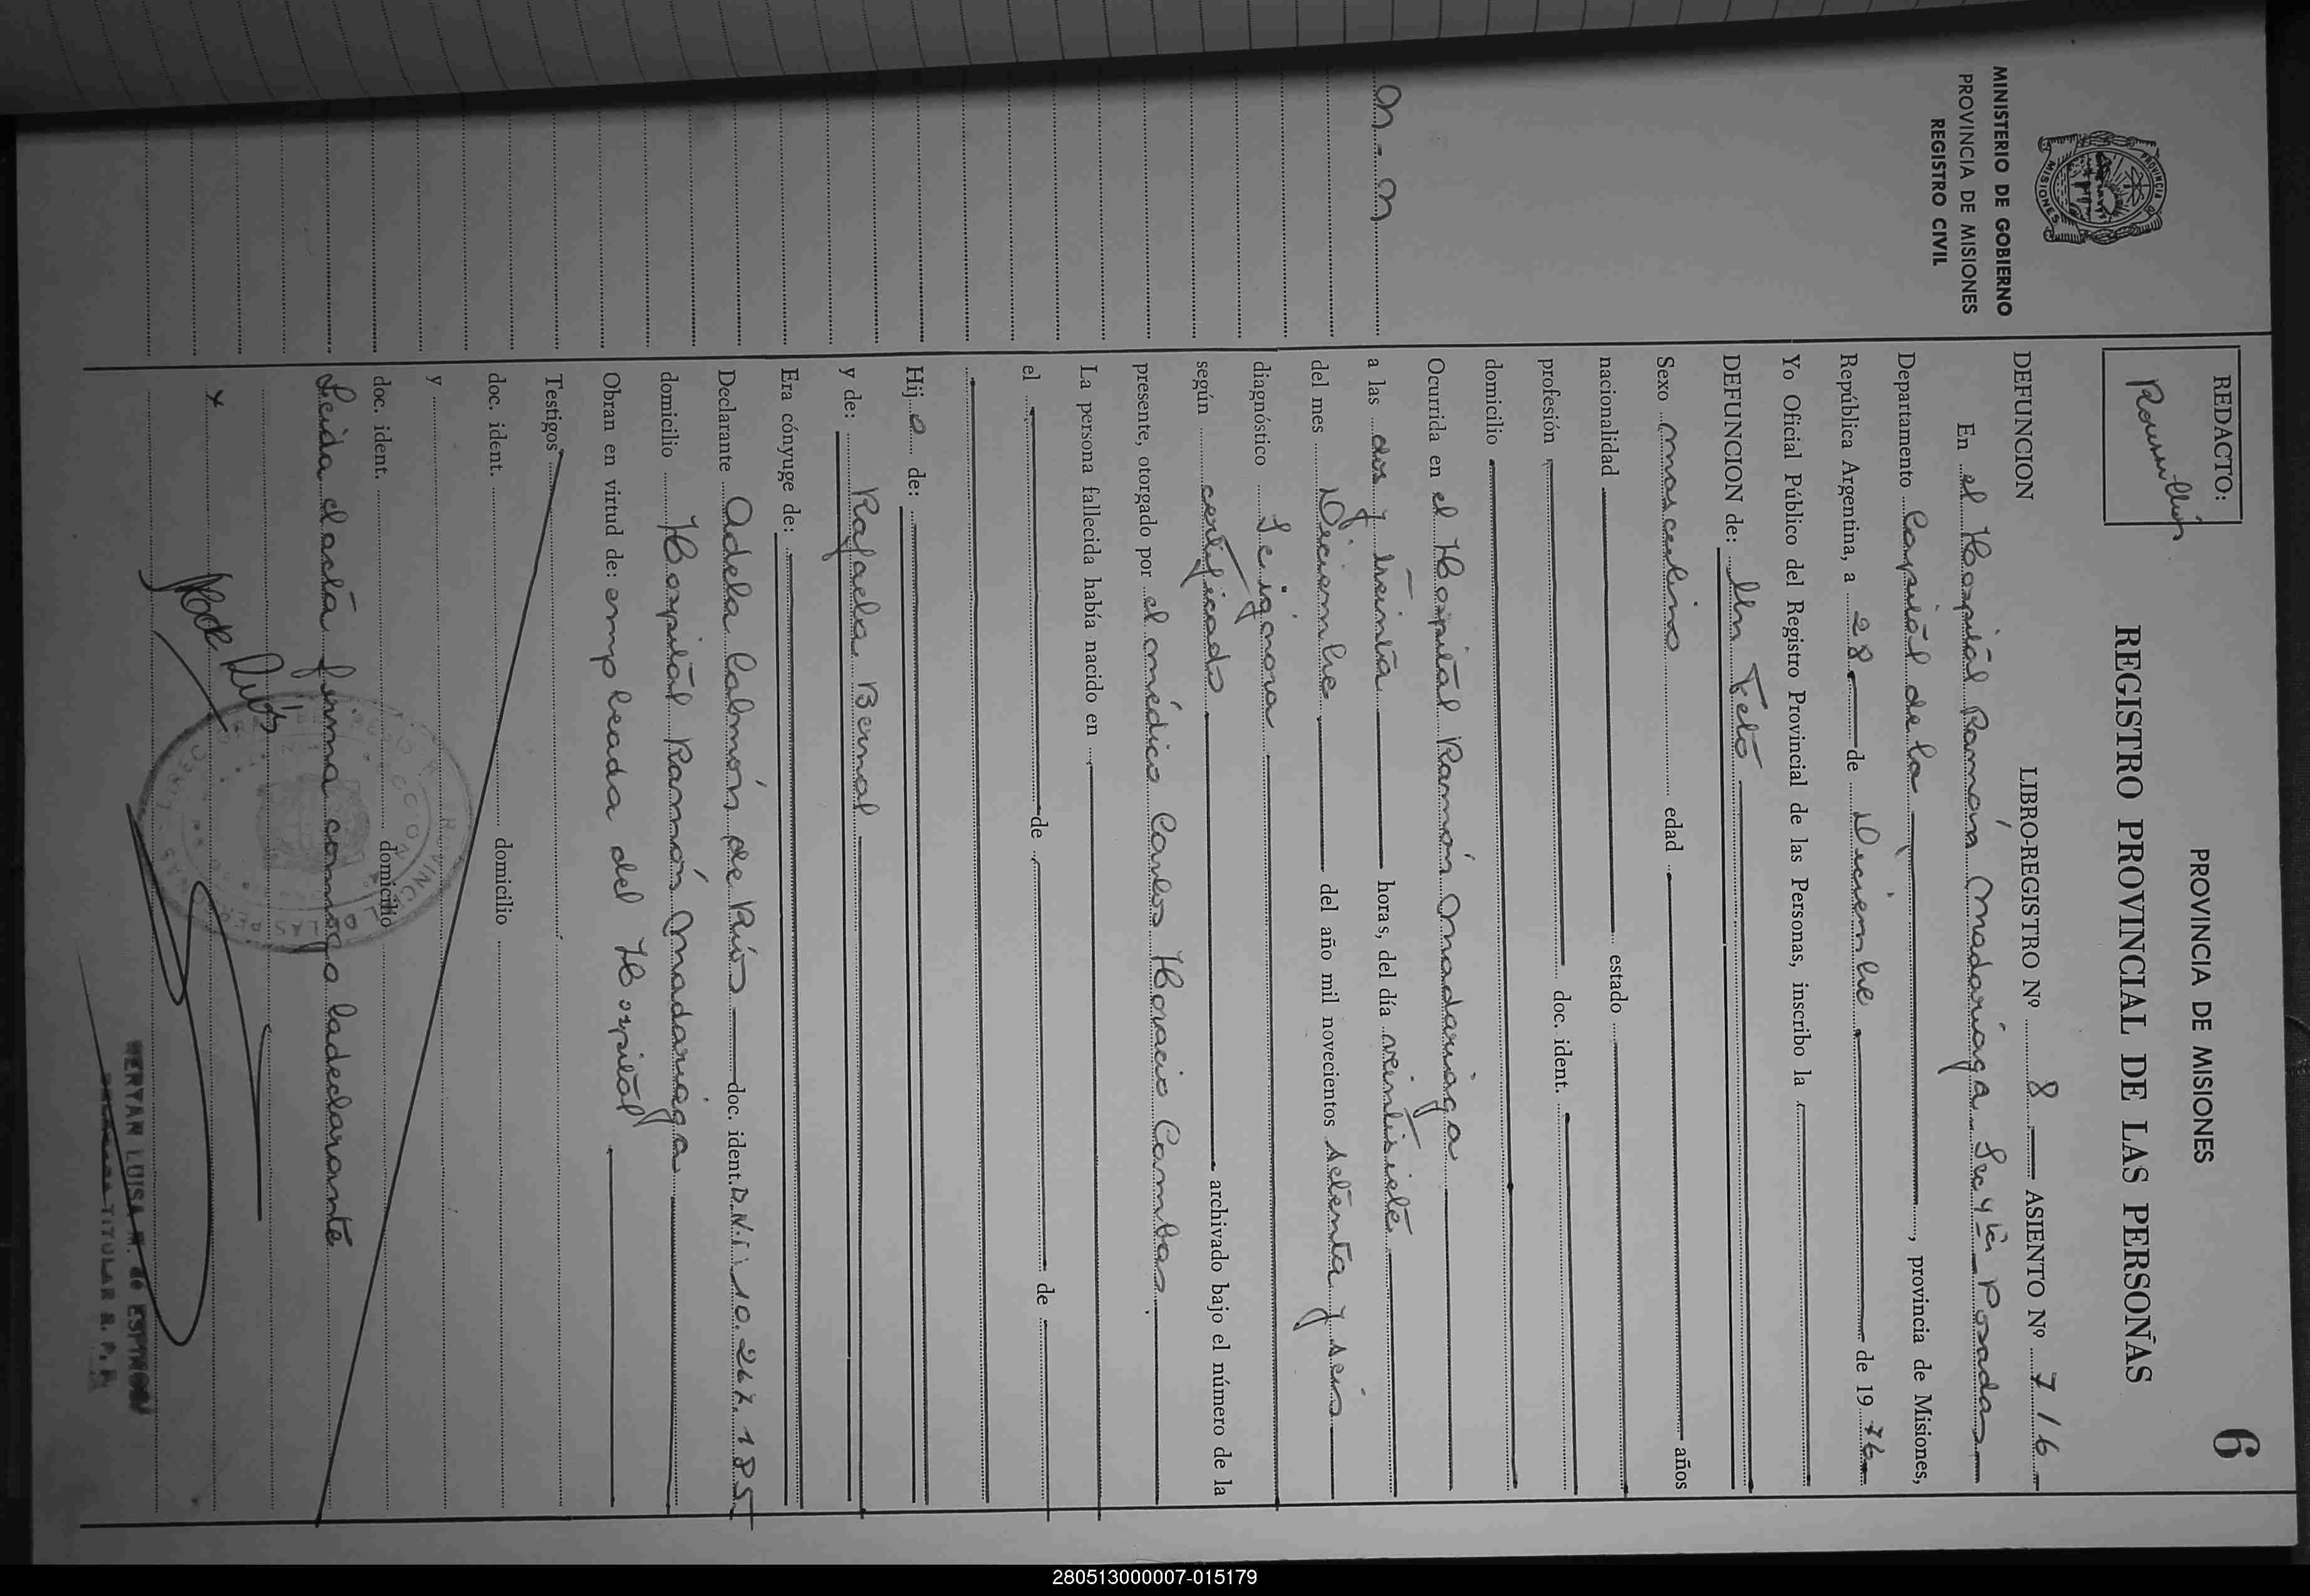 PROVINCIA DE MISIONES
6
REGISTRO PROVINCIAL DE LAS PERSONAS
REDACTO:
MINISTERIO DE GOBIERNO
PROVINCIA DE MISIONES
REGISTRO CIVIL
DEFUNCION LIBRO-REGISTRO Nº 8 ASIENTO Nº 716
En el Hospital Ramón Madariaga Posadas
Departamento Capital de la, provincia de Misiones,
República Argentina, a 28 de Diciembre de 1976
Yo Oficial Público del Registro Provincial de las Personas, inscribo la
DEFUNCION de: Un Feto
Sexo masculino edad años
nacionalidad estado
profesión doc. ident.
domicilio
Ocurrida en el Hospital Ramón Madariaga
N-N a las dos y treinta horas, del día veintisiete
del mes Diciembre del año mil novecientos setenta y seis
diagnóstico Se ignora
según certificado archivado bajo el número de la
presente, otorgado por el médico Carlos Horacio Cambas
La persona fallecida había nacido en
el de de
Hijo de:
y de: Rafaela Bernal
Era cónyuge de:
Declarante Adela Cabmón de Ríos doc. ident. D.N.I. 10.267.185
domicilio Hospital Ramón Madariaga
Obran en virtud de: empleada del Hospital
Testigos
doc. ident. domicilio
y
doc. ident. domicilio
Leída el acta firma conmigo la declarante
x
MERYAN LUISA M. de ESPINOSA
TITULAR R. P. P.
280513000007-015179